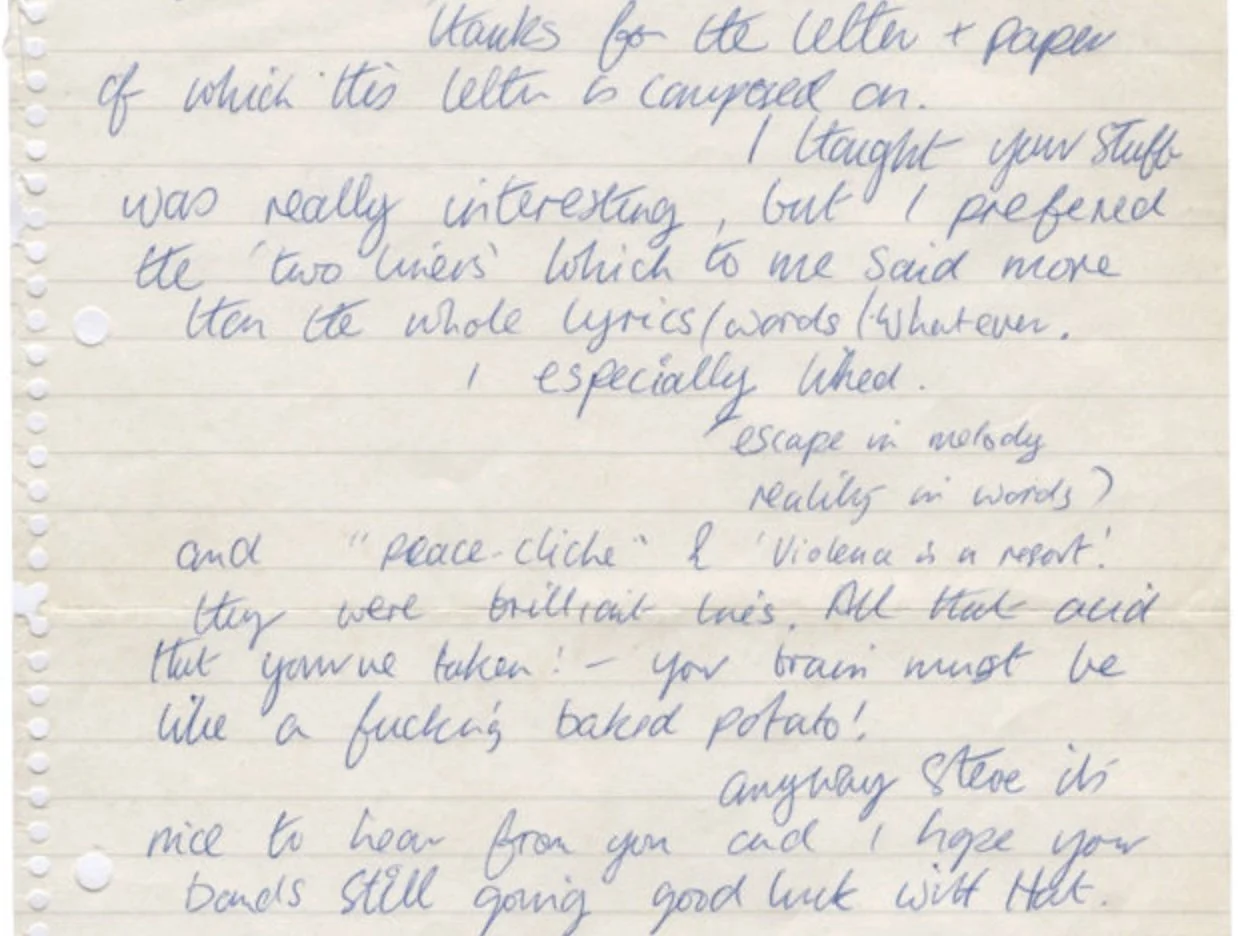 thanks for the letter + paper
of which this letter is composed on.
I thought your stuff
was really interesting, but I prefered
the 'two liners' which to me said more
then the whole lyrics/words/whatever.
I especially liked.
escape in melody
reality in words)
and "peace-cliche" & 'Violence is a resort!'
they were brilliant lines. All that acid
that youv've taken! - your brain must be
like a fucking baked potato!
anyway Steve its
nice to hear from you and I hope your
bands still going good luck with that.